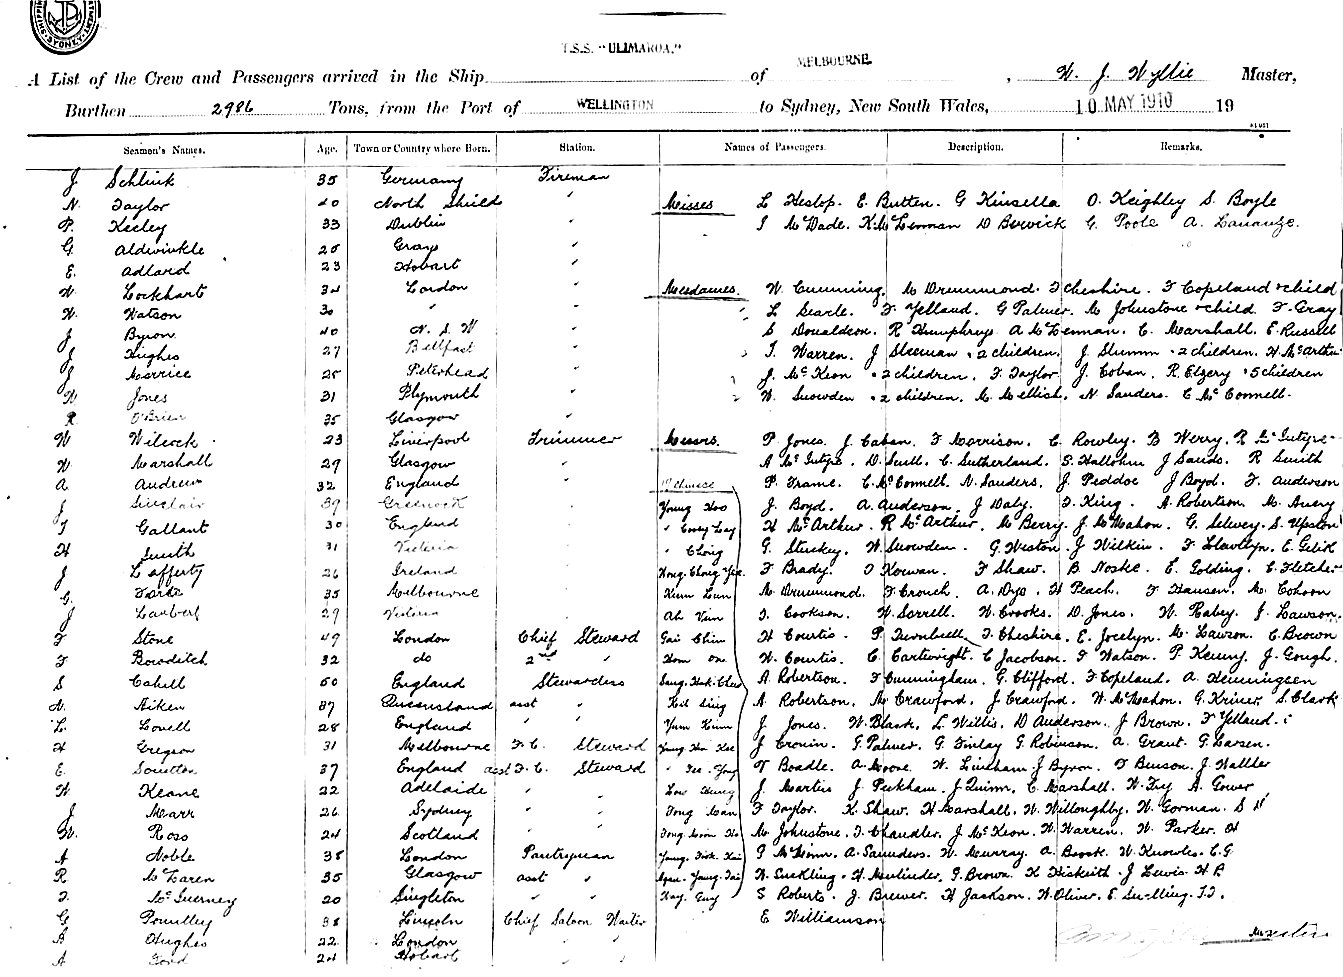 SYDNEY
T.S.S. "ULIMAROA."
A List of the Crew and Passengers arrived in the Ship of MELBOURNE, W. J. Wyllie Master,
Burthen 2986 Tons, from the Port of WELLINGTON to Sydney, New South Wales, 10 MAY 1910 19
Seamen's Names. Age. Town or Country where Born. Station. Names of Passengers. Description. Remarks.
J Schlink 35 Germany Fireman
N. Taylor 40 North Shields " Misses L Heslop. E Butten. G Kinsella O. Keighley S. Boyle
P. Keeley 33 Dublin " I McDade. K. McLennan D Berwick G. Poole A.
G. Aldwinkle 25 Grays "
E. Adlard 23 Hobart "
W. Lockhart 34 London " Mesdames. W Cumming, M Drummond. I Cheshire. F Copeland & child
W. Watson 30 " " " L Searle. F Yelland. G Palmer. M Johnstone & child. F. Gray
J Byron 40 N. S. W " S Donaldson. R Humphrys A McLennan. C. Marshall. E. Russell
J Hughes 27 Bellfast " " I. Warren. J Sleeman & 2 children. J. Slumm & 2 children. H. McArthur
J Morrice 25 Peterhead " J. McKeon & 2 children. F. Taylor J. Coban. R. Elzery & 5 children
W Jones 31 Plymouth " " W. Snowden & 2 children. M. Mellish. N. Sanders. C McConnell.
R O'Brien 35 Glasgow
W Wilcock 23 Liverpool Trimmer Messrs. P. Jones. J. Caban. F Morrison. C. Rowley. B Werry. R McIntyre
W. Marshall 29 Glasgow " A McIntyre. D. Scull. C. Sutherland. S. Hallohm J Sands. R Smith
A Andrew 32 England " Chinese P. Frame. C. McConnell. N. Sanders. J. Peddoe J Boyd. F. Anderson
J Sinclair 39 Greenock Young Hoo J. Boyd. A. Anderson. J Daly. F. King. A. Robertson. M. Avery
I Gallant 30 England " H McArthur. R McArthur. M Berry. J. McMahon. G. Selwey. S. Upston
H Smith 31 Victoria " Chong G. Stuckey. W. Snowden. G. Weston. J Wilkin. F Llewellyn. E. Gelik
J Lafferty 26 Ireland Hong. Chong Yee F Brady. O Korwan. F Shaw. B Noske. E. Golding. C. Fletcher
G. 35 Melbourne Kum Lun M Drummond. F Crouch. A. Dyo. H Peach. F Hansen. M. Cohoon
J Lambert 29 Victoria Ah Yum I. Cookson. W. Sorrell. W. Crooks. D. Jones. W. Rabey. J. Lawson.
F Stone 49 London Chief Steward Gai Chin H Courtis. P Turnbull. I. Cheshire. E. Jocelyn. M. Lawson. C. Brown
F Bowditch 32 do 2nd " Hom On W. Courtis. C Cartwright. C Jacobson. F Watson. P. Kenny. J. Gough.
S Cahill 50 England Stewardess Sang. Hok. Chew A Robertson. F Cunningham. G. Clifford. F. Copeland. A. Hemmingsen
A. Aiken 37 Queensland asst " Kit Sing A Robertson. M Crawford. J. Crawford. W. McMahon. G. Kriner. S. Clark
L. Lovell 28 England " " Yum Kum J. Jones. W. Black. L. Willis. D. Anderson. J Brown. F Yelland.
H Gregson 31 Melbourne F. C. Steward Young Hoo Kee J Cronin. G Palmer. G. Finlay G. Robinson. A. Grant. G. Larsen.
E. Scrutton 37 England asst F. C. Steward " Tee. Yong V Boadle. A. Moore. W. Lineham J Byron. F Benson. J. Wallder
W Keane 22 Adelaide " " Low Hung J. Martin J Peckham. J Quinn. C. Marshall. W. Fry A. Gower
J. Marr 26 Sydney " " Tong Man F Taylor. K. Shaw. H Marshall. W. Willoughby. W. Gorman. S
W. Ross 24 Scotland " " M Johnstone. I. Chandler. J McKeon. W. Warren. W. Parker. H
A Noble 38 London Pantryman Young. I McMinn. A. Saunders. W. Murray. A. Brook. W Knowles. C. G
R McLaren 35 Glasgow asst " W. Suckling. H. Neulieder. G. Brown. K Hiskeith. J Lewis. H B
F. McGuerney 20 Singleton " " Kay. Guy S Roberts. J. Brewer. H Jackson. W. Oliver. E. Snelling. I. I.
G Pountley 38 Lincoln Chief Saloon Waiter E Williamson
B Hughes 22 London " "
A Ford 24 Hobart " " Master